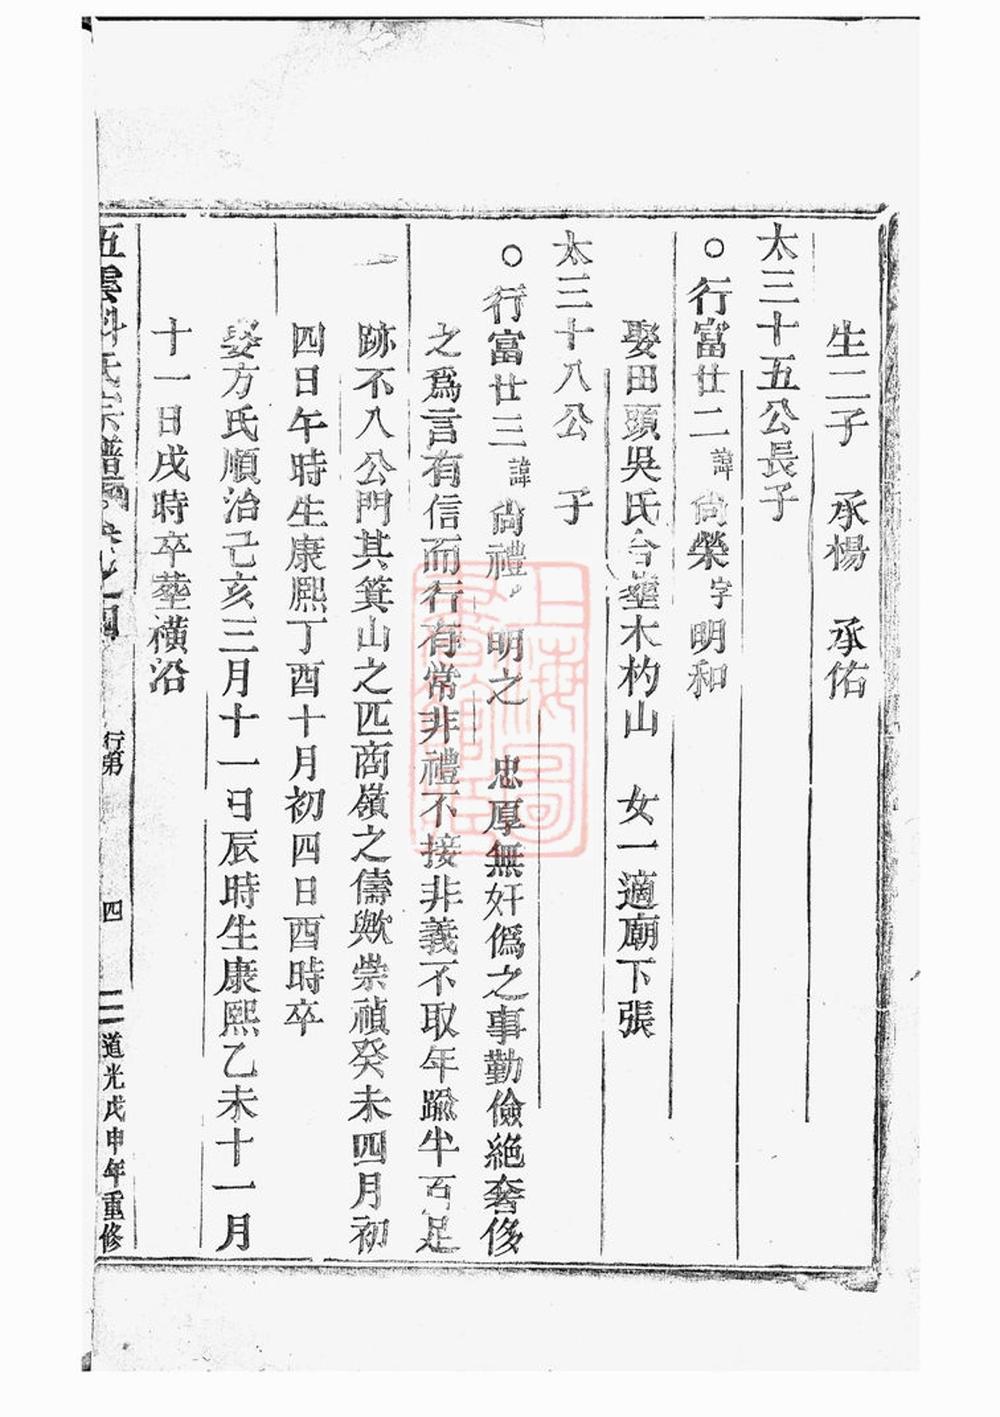 生二子 承楊 承佑
太三十五公長子
○行富廿二諱尙榮字明和
娶田頭吳氏合塟木杓山 女一適廟下張
太三十八公 子
○行富廿三諱尙禮 明之 忠厚無奸僞之事勤儉絶奢侈
之爲言有信而行有常非禮不接非義不取年踰半百足
跡不入公門其箕山之匹商嶺之儔歟崇禎癸未四月初
四日午時生康熙丁酉十月初四日酉時卒
娶方氏順治己亥三月十一日辰時生康熙乙未十一月
十一日戌時卒塟横沿
五雲 氏宗譜 四
行第
四
道光戊申年重修
上海圖書館藏